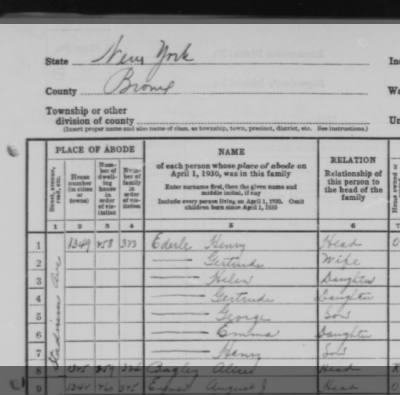 State New York
County Bronx
Township or other
division of county
(Insert proper name and also name of class, as township, town, precinct, district, etc. See instructions.)
PLACE OF ABODE
NAME
of each person whose place of abode on
April 1, 1930, was in this family
Enter surname first, then the given name and
middle initial, if any
Include every person living on April 1, 1930. Omit
children born since April 1, 1930
RELATION
Relationship of
this person to
the head of the
family
Street, avenue, road, etc.
House number (in cities or towns)
Number of dwelling house in order of visitation
Number of family in order of visitation
Home owned or
1 2 3 4 5 6 7
1 1349 Ederle Henry Head O
2 Gertrude Wife
3 Helen Daughter
4 Gertrude Daughter
5 George Son
6 Emma Daughter
7 Henry Son
8 Bagley Alice Head
9 August J Head O